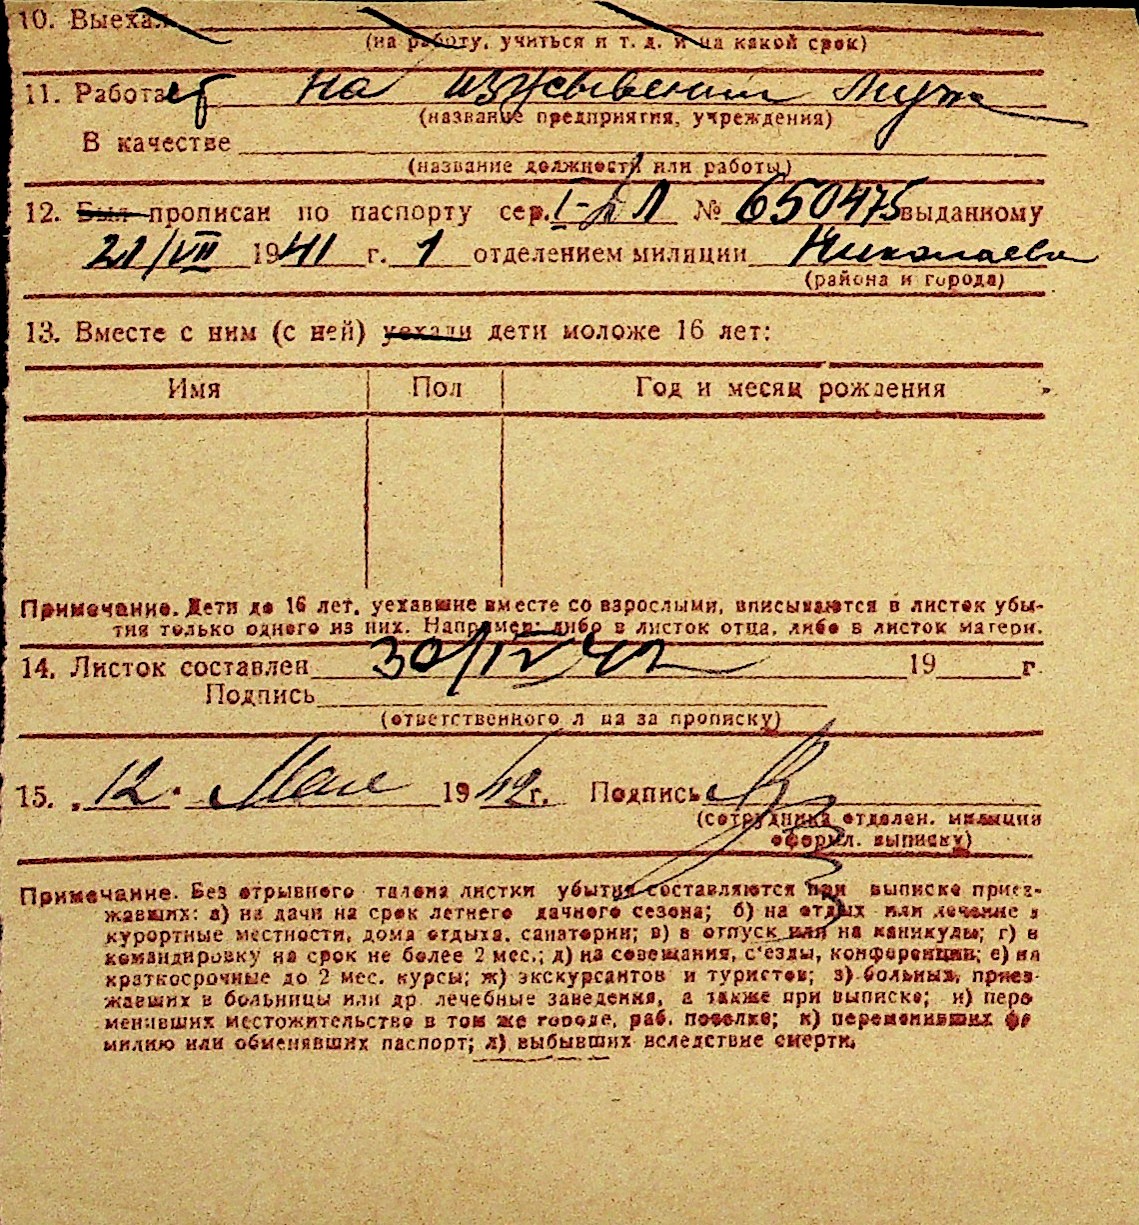 10. Выехал
(на работу, учиться и т. д. и на какой срок)
11. Работает на изживении мужа
(название предприятия, учреждения)
В качестве
(название должности или работы)
12. Был прописан по паспорту сер. № 650475 выданному
21/VII 1941 г. 1 отделением милиции Николаева
(района и города)
13. Вместе с ним (с ней) уехали дети моложе 16 лет:
Имя Пол Год и месяц рождения
Примечание. Дети до 16 лет, уехавшие вместе со взрослыми, вписываются в листок убы-
тия только одного из них. Например: либо в листок отца, либо в листок матери.
14. Листок составлен 30/IV 42 19 г.
Подпись
(ответственного лица за прописку)
15. „12. Мая 1942г. Подпись
(сотрудника отделен. милиции
оформл. выписку)
Примечание. Без отрывного талона листки убытия составляются при выписке приез-
жавших: а) на дачи на срок летнего дачного сезона; б) на отдых или лечение в
курортные местности, дома отдыха, санатории; в) в отпуск или на каникулы; г) в
командировку на срок не более 2 мес.; д) на совещания, с'езды, конференции; е) на
краткосрочные до 2 мес. курсы; ж) экскурсантов и туристов; з) больных, приез-
жавших в больницы или др. лечебные заведения, а также при выписке; и) пере
менивших местожительство в том же городе, раб. поселке; к) переменивших фа
милию или обменявших паспорт; л) выбывших вследствие смерти.